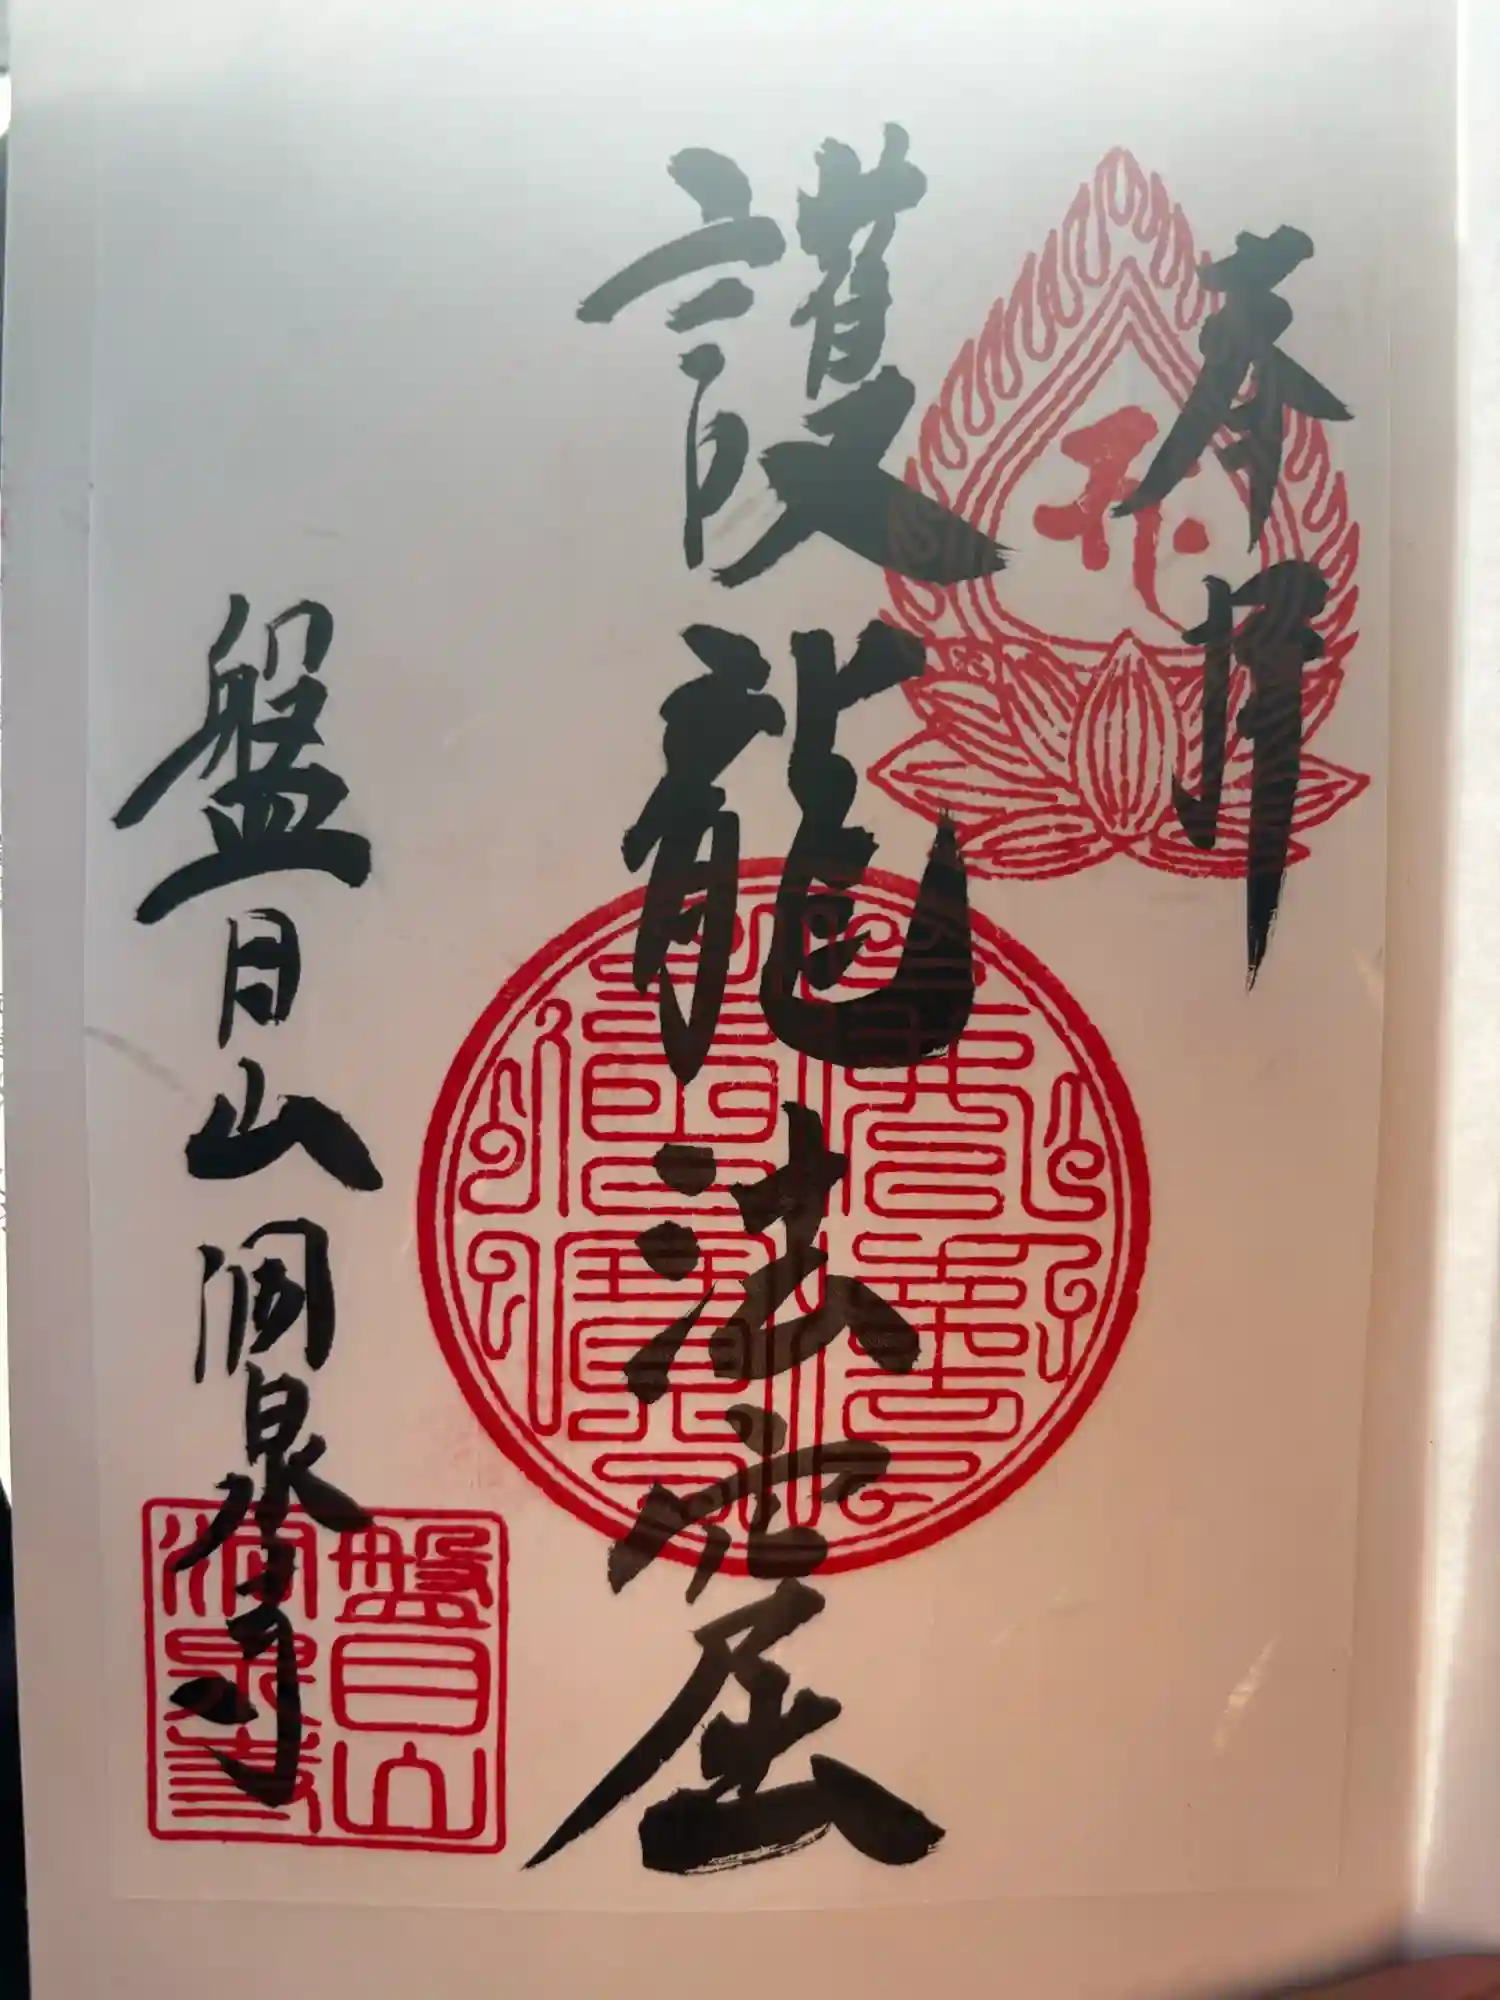 奉拝
護龍法窟
盤目山洞泉寺
盤目山
洞泉寺